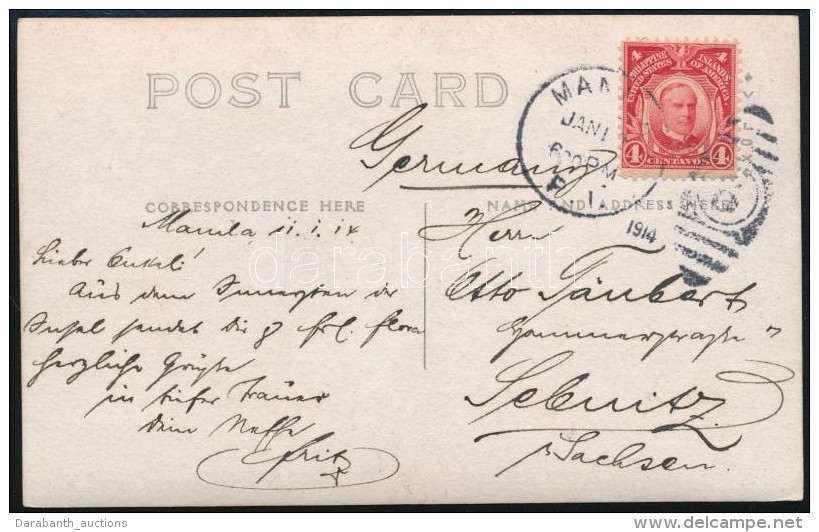 POST CARD
Germany
CORRESPONDENCE HERE
NAME AND ADDRESS HERE
PHILIPPINE ISLANDS
UNITED STATES OF AMERICA
4 CENTAVOS 4
MANI
JAN 1
6 PM
P. I.
1914
Manila 11.1.14
Lieber Onkel!
Aus dem Innersten der
Insel sendet Dir & Frl. Flora
herzliche Grüße
in tiefer Trauer
Dein Neffe
Fritz
Herrn
Otto Täubert
Sebnitz
i. Sachsen.
darabanth
Darabanth_auctions
delcampe.net